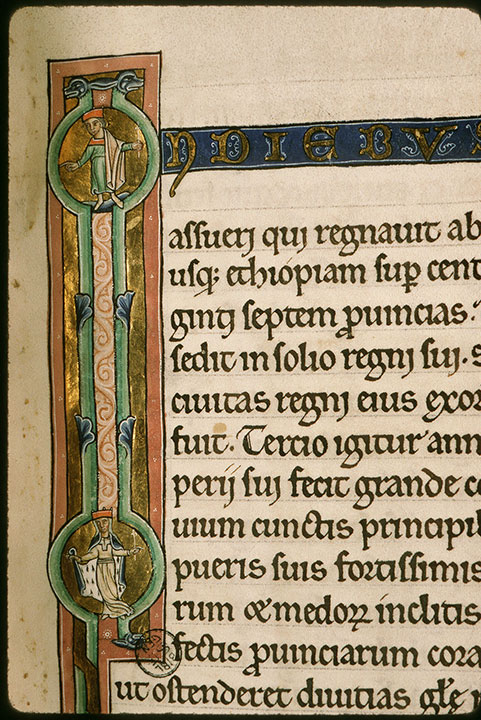 I
N DIEBVS
assuerj qui regnauit ab
usq; ethiopiam sup cent
gintj septem prouincias.
sedit in solio regni suj. S
ciuitas regnj eius exor
fuit. Tercio igitur ann
perij suj fecit grande co
uium cunctis principib
pueris suis fortissimis
rum & medoꝝ inclitis
fectis prouinciarum cora
ut ostenderet diuitias glę r